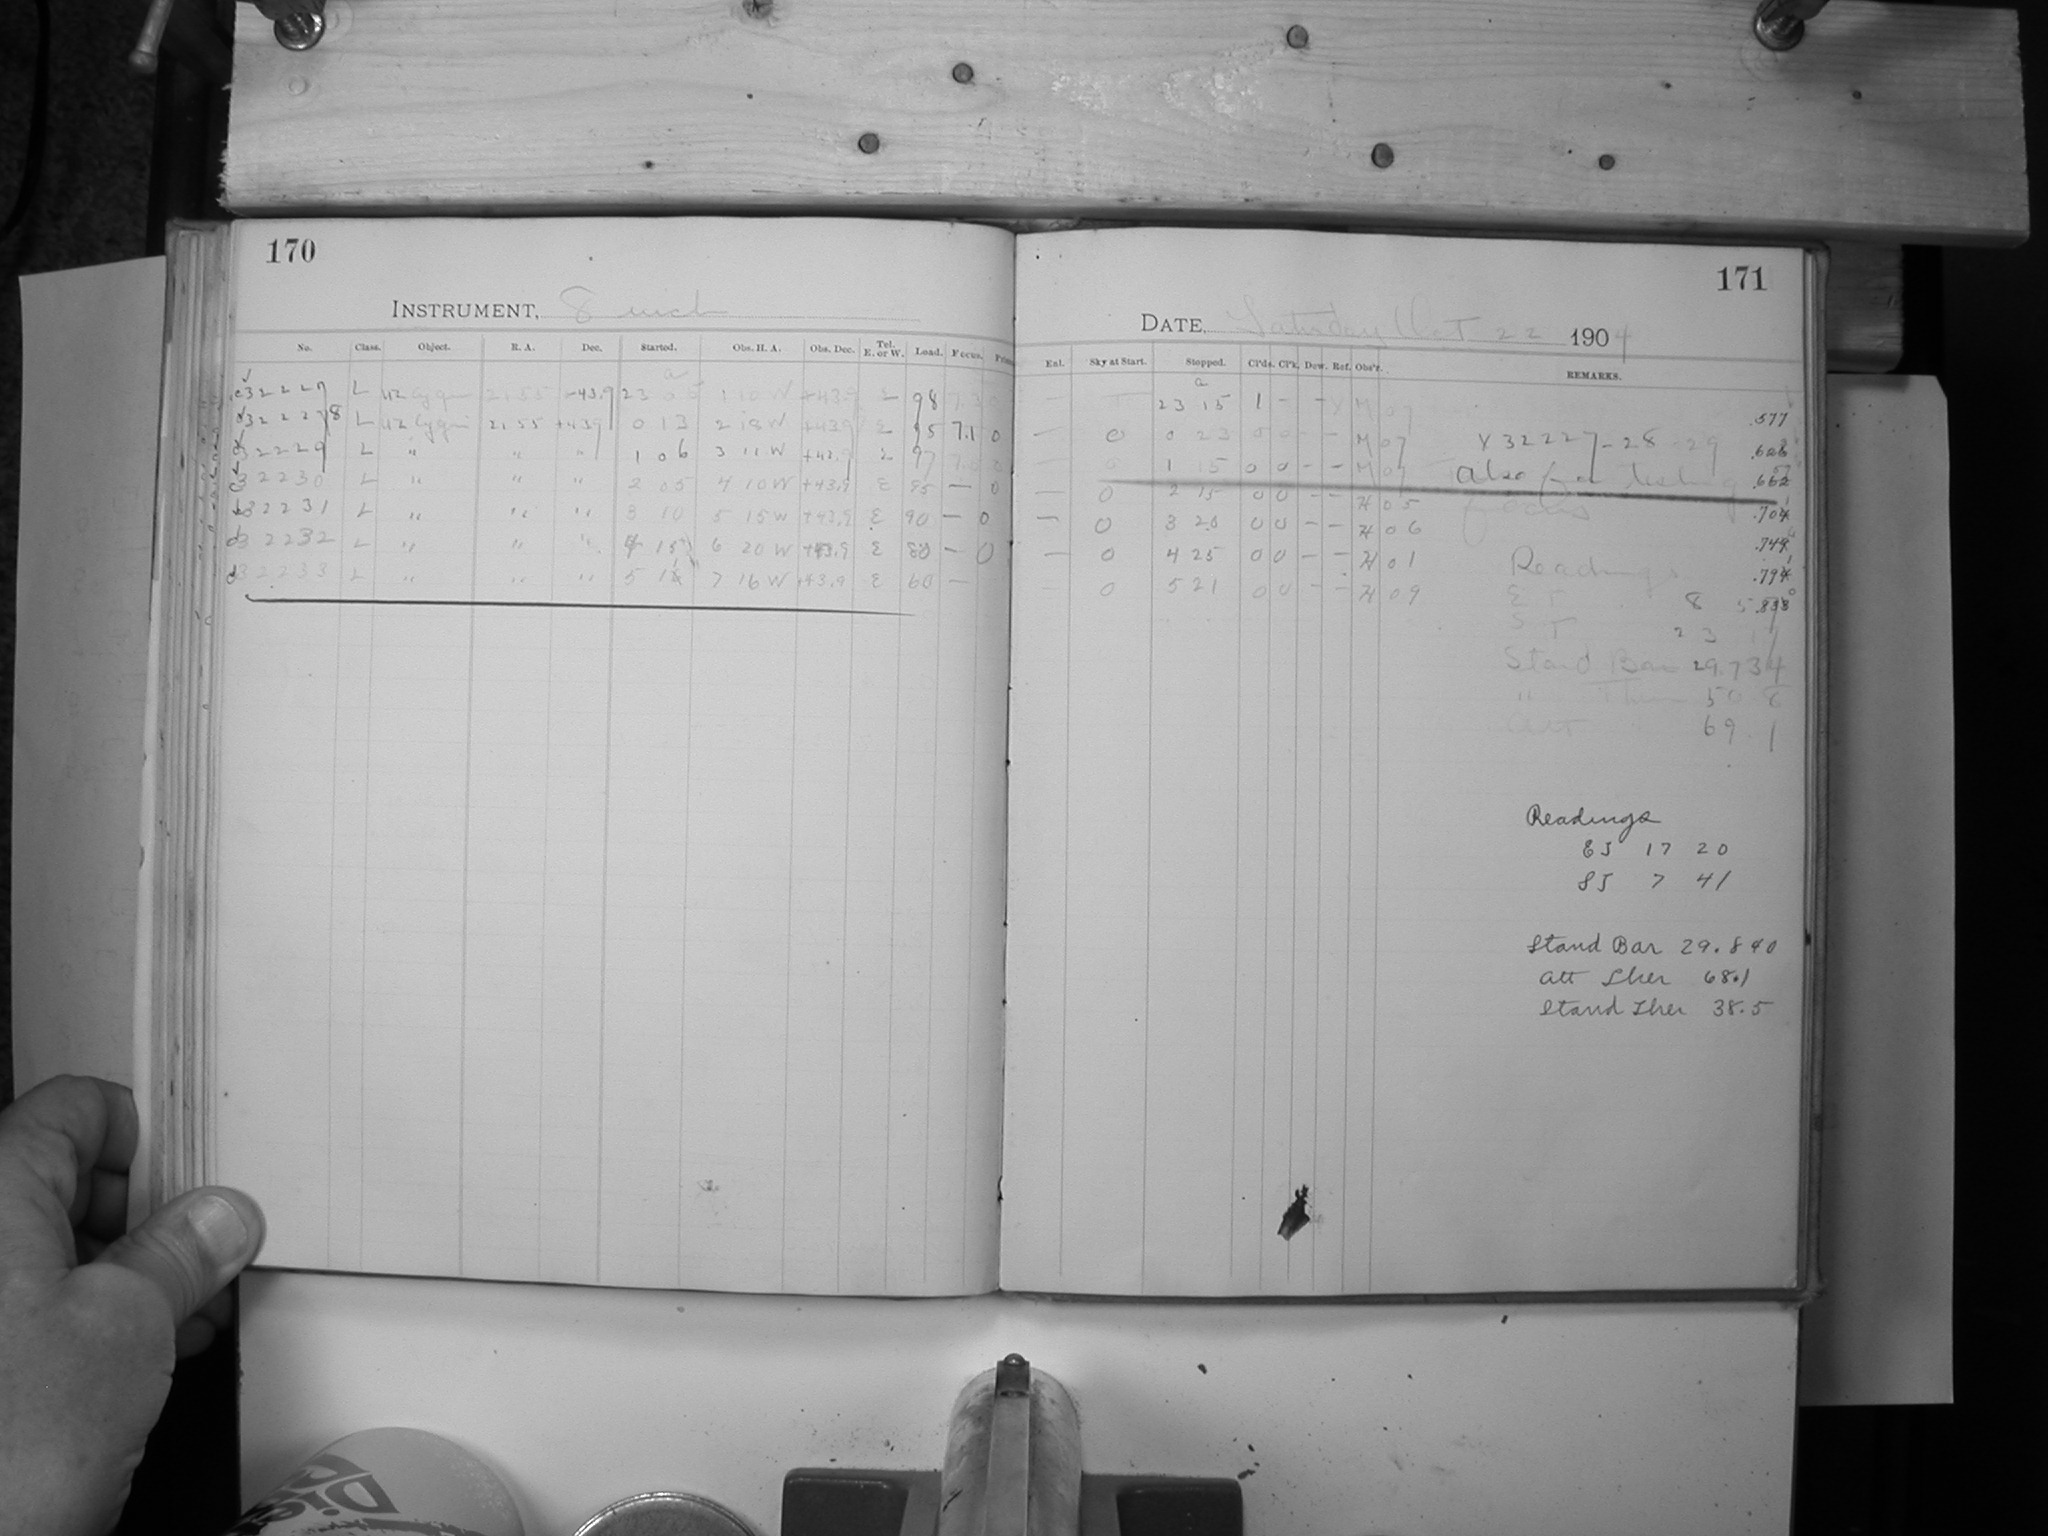 170
INSTRUMENT, 8 inch
No. Class. Object. R. A. Dec. Started. Obs. H. A. Obs. Dec. Tel. E. or W. Load. Focus.
32227 L UZ Cygni 21 55 +43.9 23 05 1 10 W +43.9 E 98 7.3 0
322278 L UZ Cygni 21 55 +43.9 0 13 2 18 W +43.9 E 95 7.1 0
32229 L " " " 1 06 3 11 W +43.9 E 97 7.0 0
32230 L " " " 2 05 4 10 W +43.9 E 95 — 0
32231 L " " " 3 10 5 15 W +43.9 E 90 — 0
32232 L " " " 4 15 6 20 W +43.9 E 80 — 0
32233 L " " " 5 11 7 16 W +43.9 E 60 —
171
DATE, Saturday Oct 22 1904
Enl. Sky at Start. Stopped. Cl'ds. Cl'k. Dew. Ref. Obs'r. REMARKS.
23 15 1 - - Y M 07 .577
— 0 0 23 0 0 - - M 07 X 32227-28-29
— 0 1 15 0 0 - - M 07 also for testing
— 0 2 15 0 0 H 05 focus
— 0 3 20 0 0 - - H 06
— 0 4 25 0 0 - - H 01 Readings
— 0 5 21 0 0 - - H 09 E T 8
S T 23
Stand Bar 29.734
" Ther 50 8
Att 69.1
Readings
ES 17 20
SS 7 41
Stand Bar 29.840
Att Ther 68.1
Stand Ther 38.5